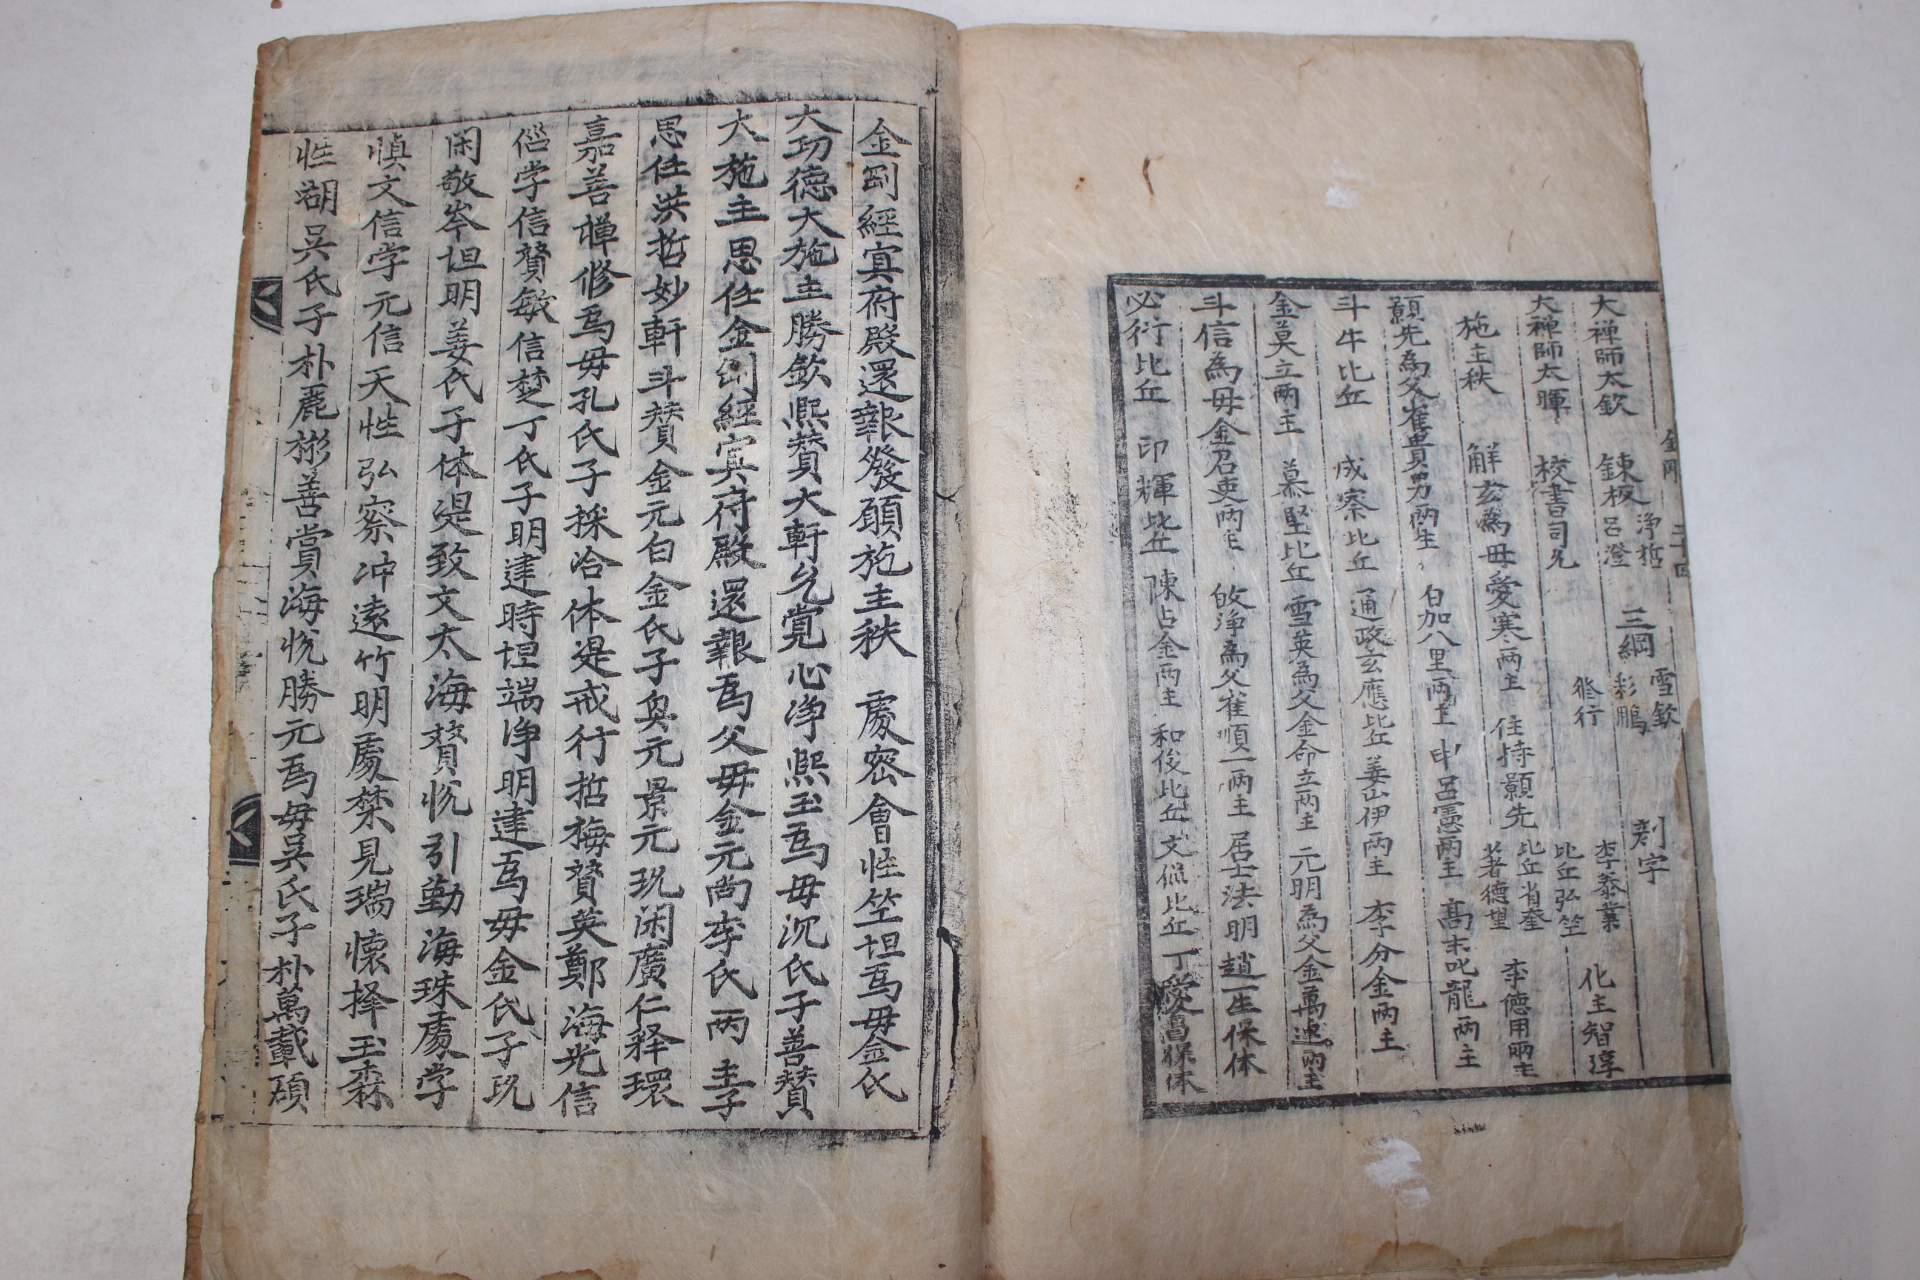 金剛 三十四
大禅師太欽 鍊板 淨哲 呂澄 三綱 雪欽 彩鵬 刻字 李泰業 化主智淳
大禅師太暉 校書司允 修行 比丘弘竺
施主秩 解玄為母愛寒兩主 住持願先 比丘省奎 著德望 李德用兩主
願先為父崔貴男兩主 白加八里兩主 申呂憲兩主 高末叱龍兩主
斗牛比丘 成察比丘 通政玄應比丘 姜山伊兩主 李分金兩主
金莫立兩主 慕堅比丘 雪英為父金命立兩主 元明為父金萬連兩主
斗信為母金召吏兩主 攸淨為父崔順一兩主 居士法明 趙一生保体
必行比丘 印輝比丘 陳占金兩主 和俊比丘 文侃比丘 丁愛昌保体
金剛經寘府殿還報發願施主秩 處密會性竺坦爲母金氏
大功德大施主勝欽熙賛大軒允覚心淨熙玉爲母沉氏子善賛
大施主思任金剛經寘府殿還報爲父母金元尚李氏两主子
思任洪哲妙軒斗賛金元白金氏子奐元景元玩闲廣仁释環
嘉善禅修爲母孔氏子採洽体湜戒行哲梅贊英鄭海光信
学信贊敏信楚丁氏子明建時坦端净明建爲母金氏子玩
闲敬岑坦明姜氏子体湜致文太海賛悅引勤海珠處学
慎文信学元信天性弘察冲遠竹明處禁見瑞懷择玉森
性湖吳氏子朴麗彬善賞海悅勝元爲母吴氏子朴萬載碩